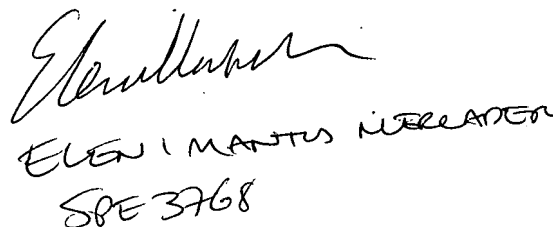 ELENI MANTUS MERCADER
SPE3768